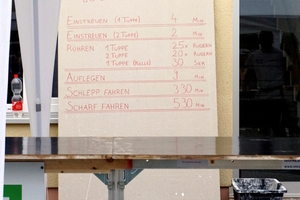 EINSTREUEN (1 TUPFE) 4 MIN
EINSTREUEN (2 TUPFE) 2 MIN
RÜHREN 1 TUPFE 25x RUDERN
2 TUPFE 20x RUDERN
1 TUPFE (RULLE) 30 SEK
AUFLEGEN 9 MIN
SCHLEPP FAHREN 3 30 MIN
SCHARF FAHREN 5 30 MIN